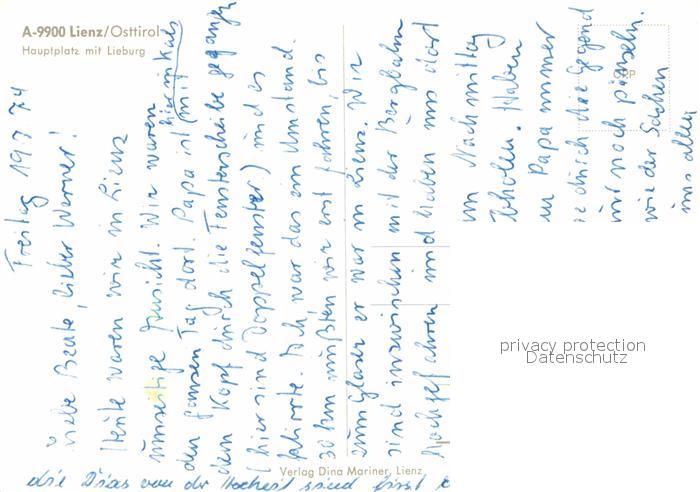 A-9900 Lienz/Osttirol
Hauptplatz mit Lieburg
Freitag 19.7.74
Liebe Beate, lieber Werner!
Heute waren wir in Lienz
umseitige Ansicht. Wir waren
den ganzen Tag dort. Papa ist (mit
hier in Kals
dem Kopf durch die Fensterscheibe gegangen
(hier sind Doppelfenster) und es
klirrte. Ach, war das ein Umstand.
30 km mußten wir erst fahren, bis
zum Glaser er war in Lienz. Wir
sind inzwischen mit der Bergbahn
hochgefahren und haben uns dort
im Nachmittag
erholen. Haben
Papa immer
durch die Gegend
nur noch pinseln.
wie der Sachen
uns allen
die Dias von der Hochzeit sind
Verlag Dina Mariner, Lienz
privacy protection
Datenschutz